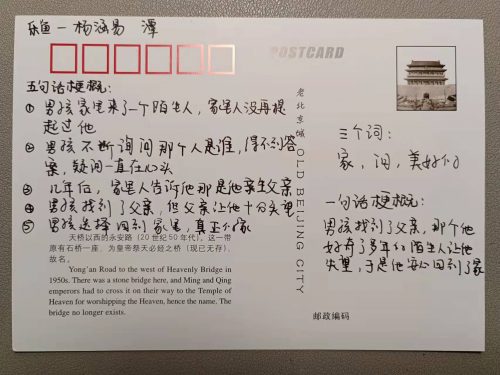 乐鱼一杨涵易 潭
POSTCARD
五句话梗概:
① 男孩家里来了一个陌生人,家里人没再提
起过他
② 男孩不断询问那个人是谁,得不到答
案,疑问一直在心头
③ 几年后,家里人告诉他那是他亲生父亲
④ 男孩找到了父亲,但父亲让他十分失望
⑤ 男孩选择回到家里,真正的家
天桥以西的永安路(20世纪50年代),这一带
原有石桥一座,为皇帝祭天必经之桥(现已无存),
故名。
Yong'an Road to the west of Heavenly Bridge in
1950s. There was a stone bridge here, and Ming and Qing
emperors had to cross it on their way to the Temple of
Heaven for worshipping the Heaven, hence the name. The
bridge no longer exists.
老北京城 OLD BEIJING CITY
三个词:
家,问,美好的
一句话梗概:
男孩找到了父亲,那个他
好奇了多年的陌生人让他
失望,于是他安心回到了家
邮政编码